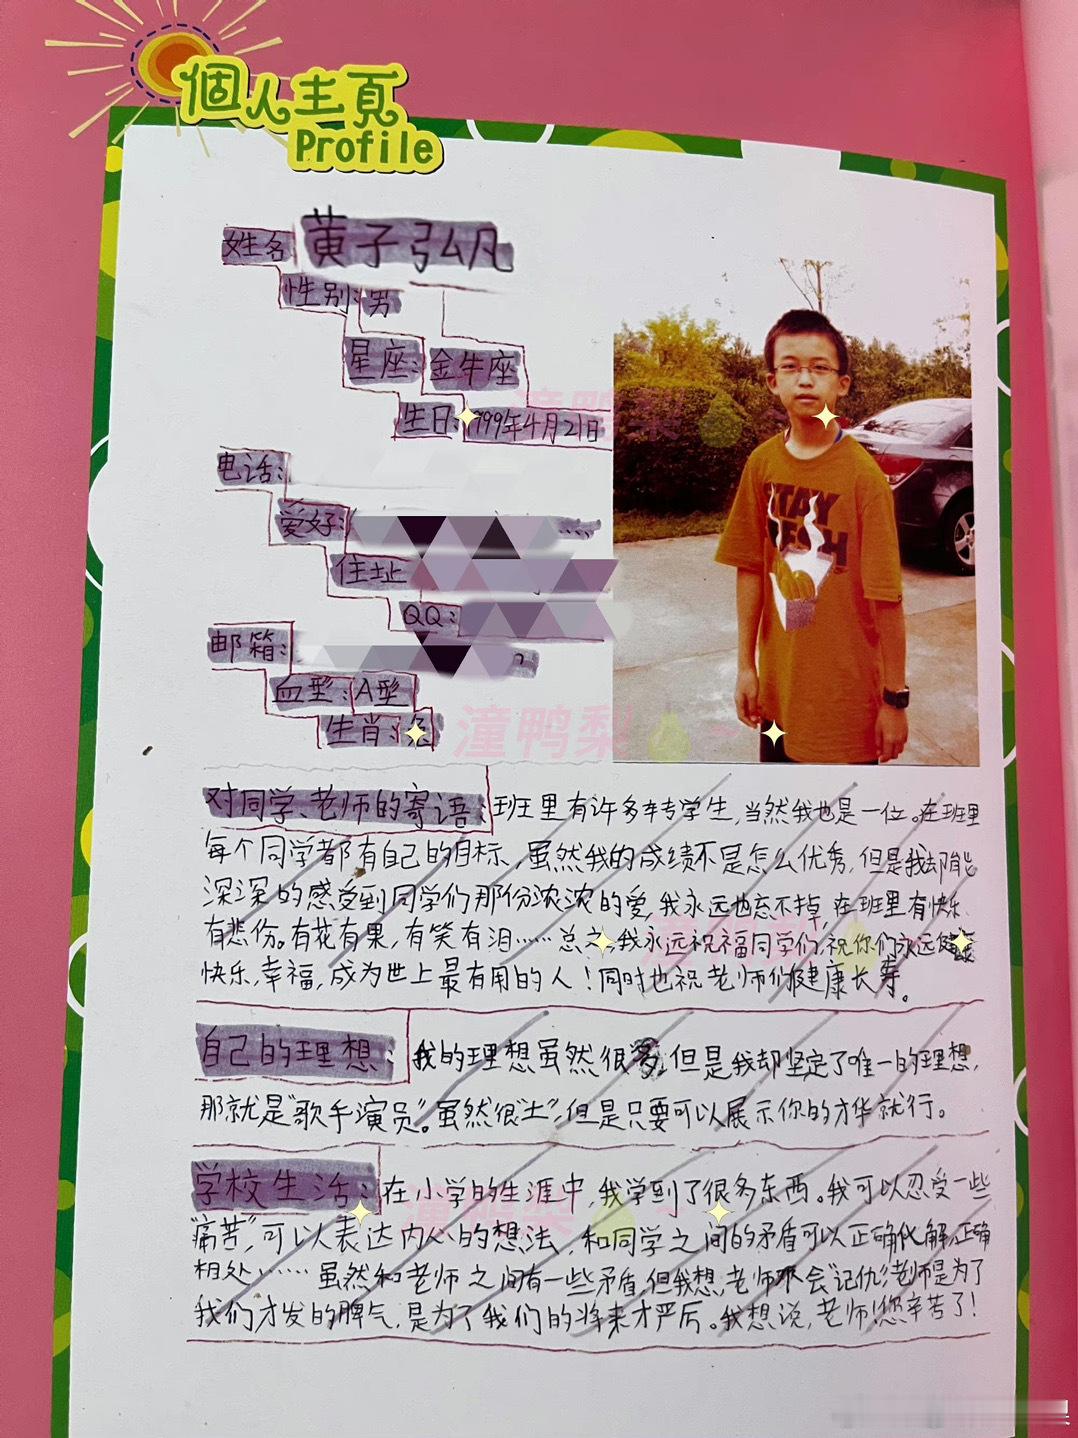 個人主頁
Profile
姓名 黄子弘凡
性别：男
星座：金牛座
生日：1999年4月21日
电话：
爱好：
住址
QQ：
邮箱：
血型：A型
生肖：兔
STAY
潼鸭梨
对同学、老师的寄语：班里有许多幸学生，当然我也是一位。在班里
每个同学都有自己的目标，虽然我的成绩不是怎么优秀，但是我却能
深深的感受到同学们那份浓浓的爱，我永远也忘不掉，在班里有快乐
有悲伤。有花有果，有笑有泪……总之，我永远祝福同学们，祝你们永远健康
快乐，幸福，成为世上最有用的人！同时也祝老师们健康长寿。
自己的理想：我的理想虽然很多，但是我却坚定了唯一的理想，
那就是“歌手演员”。虽然很“土”，但是只要可以展示你的才华就行。
学校生活：在小学的生涯中，我学到了很多东西。我可以忍受一些
“痛苦”，可以表达内心的想法，和同学之间的矛盾可以正确化解，正确
相处……虽然和老师之间有一些矛盾，但我想，老师不会“记仇”，老师是为了
我们才发的脾气，是为了我们的将来才严厉。我想说，老师！您辛苦了！